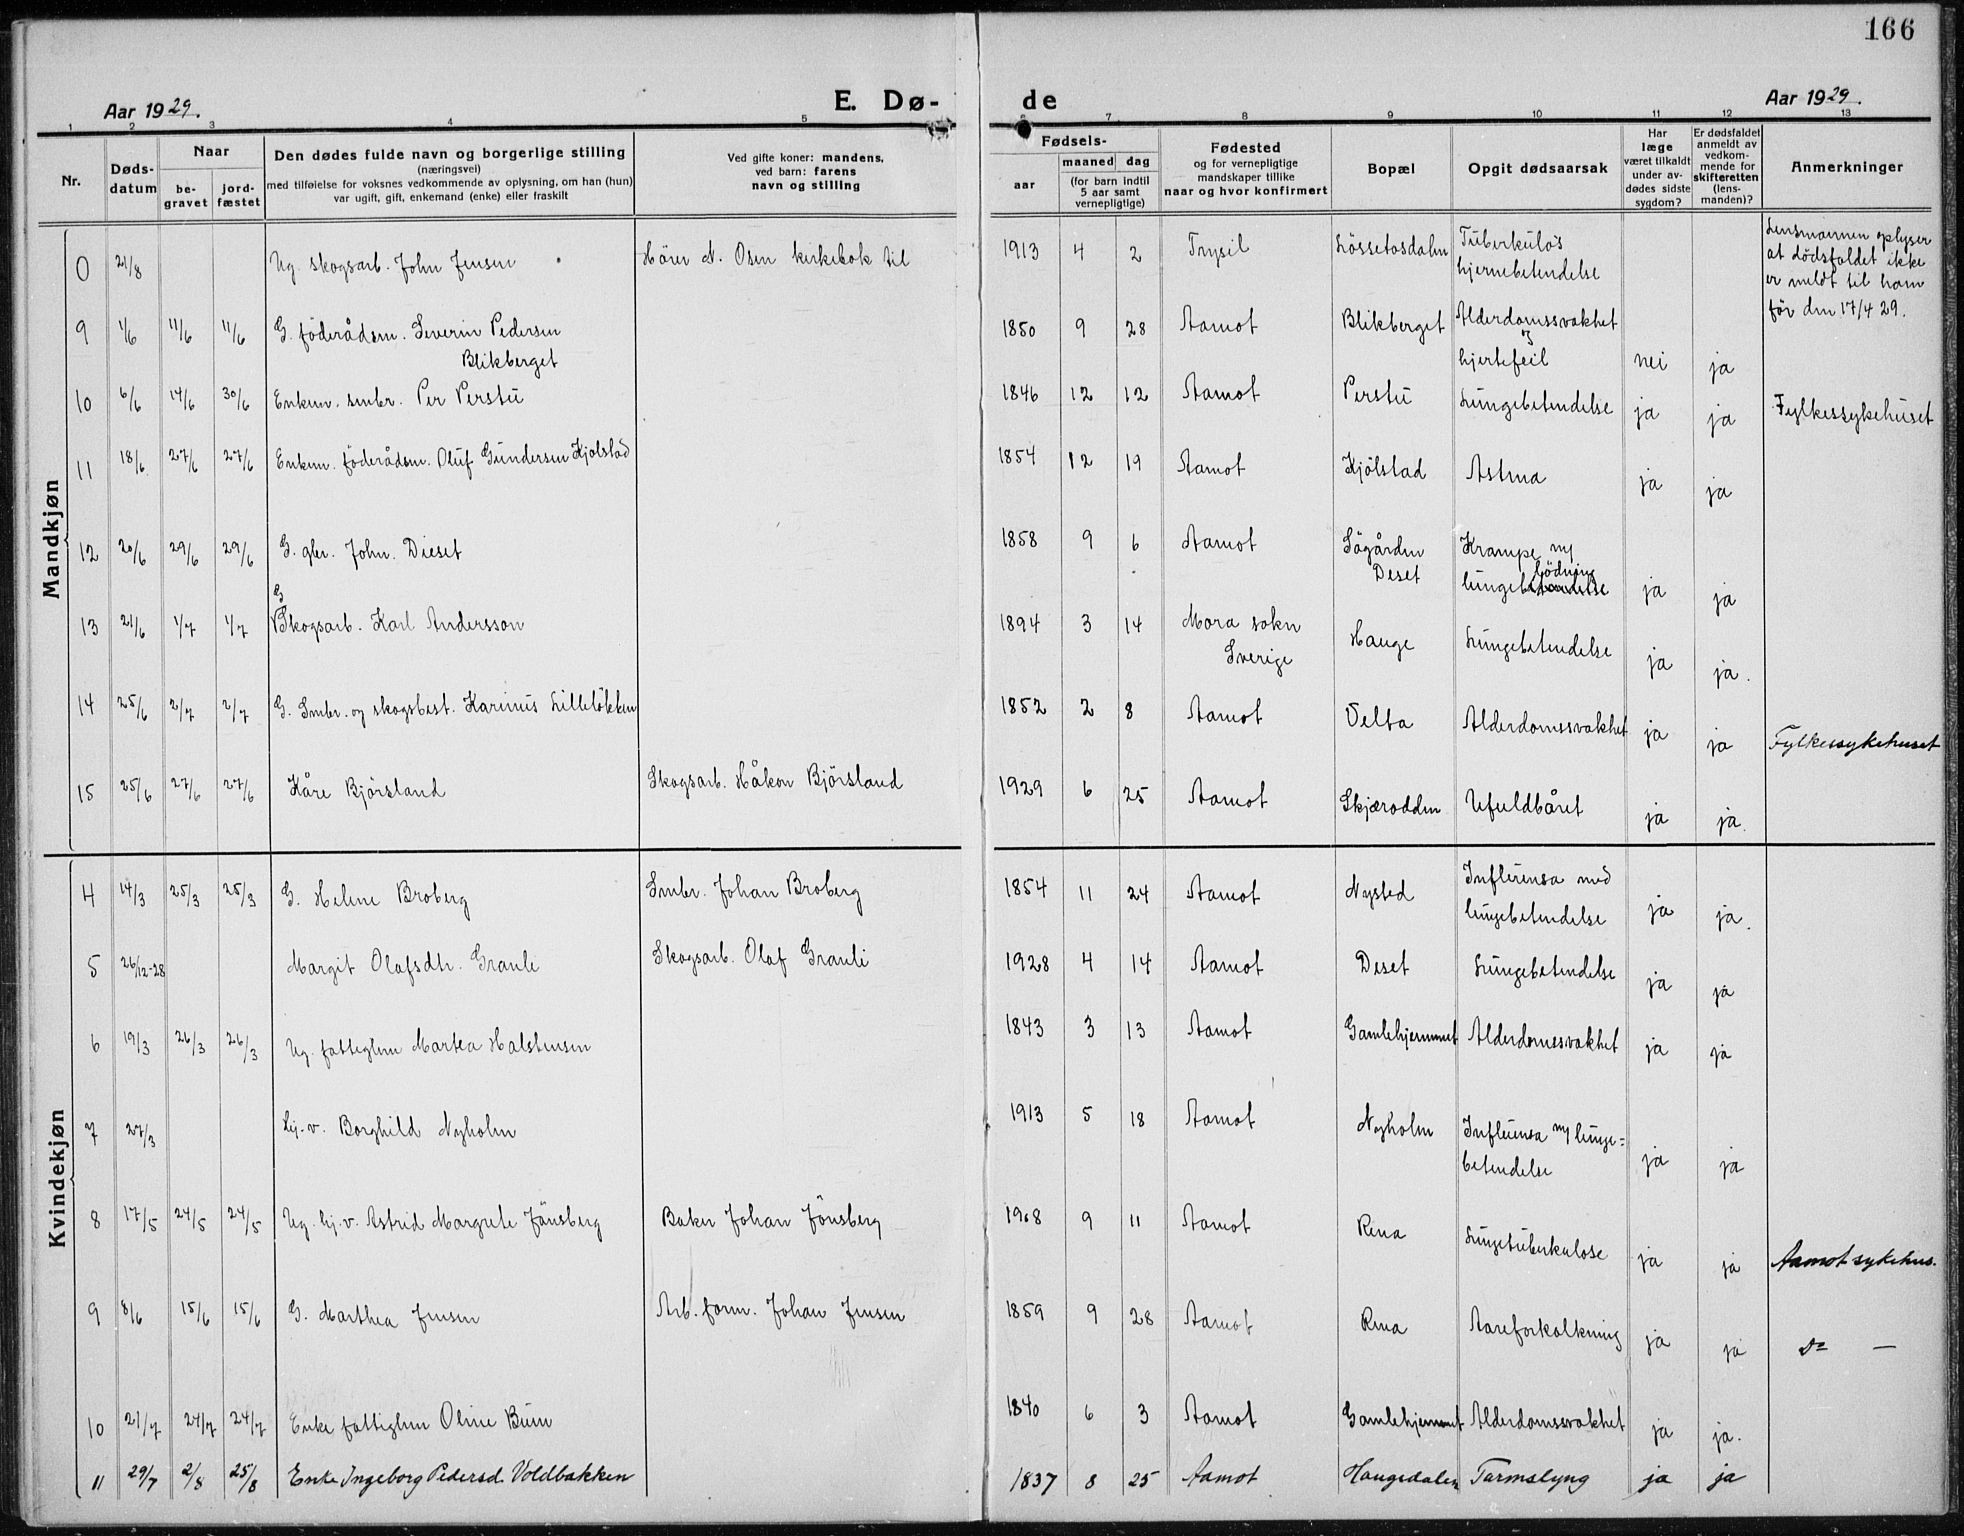 166
Aar 1929.
E. Dø-
de
Aar 1929.
1 2 3 4 5 6 7 8 9 10 11 12 13
Nr.
Døds-
datum
Naar
be-
gravet
jord-
fæstet
Den dødes fulde navn og borgerlige stilling
(næringsvei)
med tilføielse for voksnes vedkommende av oplysning, om han (hun)
var ugift, gift, enkemand (enke) eller fraskilt
Ved gifte koner: mandens,
ved barn: farens
navn og stilling
Fødsels-
aar
maaned dag
(for barn indtil
5 aar samt
vernepligtige)
Fødested
og for vernepligtige
mandskaper tillike
naar og hvor konfirmert
Bopæl
Opgit dødsaarsak
Har
læge
været tilkaldt
under av-
dødes sidste
sygdom?
Er dødsfaldet
anmeldt av
vedkom-
mende for
skifteretten
(lens-
manden)?
Anmerkninger
Mandkjøn
0 21/8 Ug. skogsarb. John Jensen Hører N. Osen kirkebok til 1913 4 2 Trysil Løssetosdalen Tuberkuløs
hjernebetendelse
Lensmannen oplyser
at dödsfaldet ikke
er meldt til ham
för den 17/4 29.
9 1/6 11/6 11/6 G. föderådsm. Severin Pedersen
Blikberget
1850 9 28 Aamot Blikberget Alderdomssvakhet
og
hjertefeil nei ja
10 6/6 14/6 30/6 Enkem. smbr. Per Perstu 1846 12 12 Aamot Perstu Lungebetendelse ja ja Fylkessykehuset
11 18/6 27/6 27/6 Enkem. föderådsm. Oluf Gundersen Kjölstad 1854 12 19 Aamot Kjölstad Astma ja ja
12 20/6 29/6 29/6 G. gbr. John. Dieset 1858 9 6 Aamot Sögården
Deset
Krampe m/
lungeblödning ja ja
13 21/6 1/7 1/7 G
Skogsarb. Karl Andersson 1894 3 14 Mora sokn
Sverige
Hauge Lungebetendelse ja ja.
14 25/6 2/7 2/7 G. Smbr. og skogsbest. Karinius Lillelökken 1852 2 8 Aamot Velta Alderdomssvakhet ja ja Fylkessykehuset
15 25/6 27/6 27/6 Kåre Björsland Skogsarb. Håkon Björsland 1929 6 25 Aamot Skjærodden Ufuldbåret ja ja.
Kvindekjøn
4 14/3 25/3 25/3 G. Helene Broberg Smbr. Johan Broberg 1854 11 24 Aamot Nysted Influensa med
lungebetendelse ja ja.
5 26/12-28 Margit Olafsdtr. Grauli Skogsarb. Olaf Grauli 1928 4 14 Aamot Deset Lungebetendelse ja ja
6 19/3 26/3 26/3 Ug. fattiglem Martea Halstensen 1843 3 13 Aamot Gamlehjemmet Alderdomssvakhet ja ja
7 27/3 hj.v. Borghild Nyholm 1913 5 18 Aamot Nyholm Influensa m/ lunge=
betendelse ja ja
8 17/5 24/5 24/5 Ug. hj.v. Astrid Margrete Jönsberg Baker Johan Jönsberg 1908 9 11 Aamot Rena Lungetuberkulose ja ja Aamot sykehus.
9 8/6 15/6 15/6 G. Marthea Jensen Arb.form. Johan Jensen 1859 9 28 Aamot Rena Aareforkalkning ja ja Do —
10 21/7 24/7 24/7 Enke fattiglem Oline Buun 1840 6 3 Aamot Gamlehjemmet Alderdomssvakhet ja ja.
11 29/7 2/8 25/8 Enke Ingeborg Pedersd. Voldbakken 1837 8 25 Aamot Haugedalen Tarmslyng ja ja